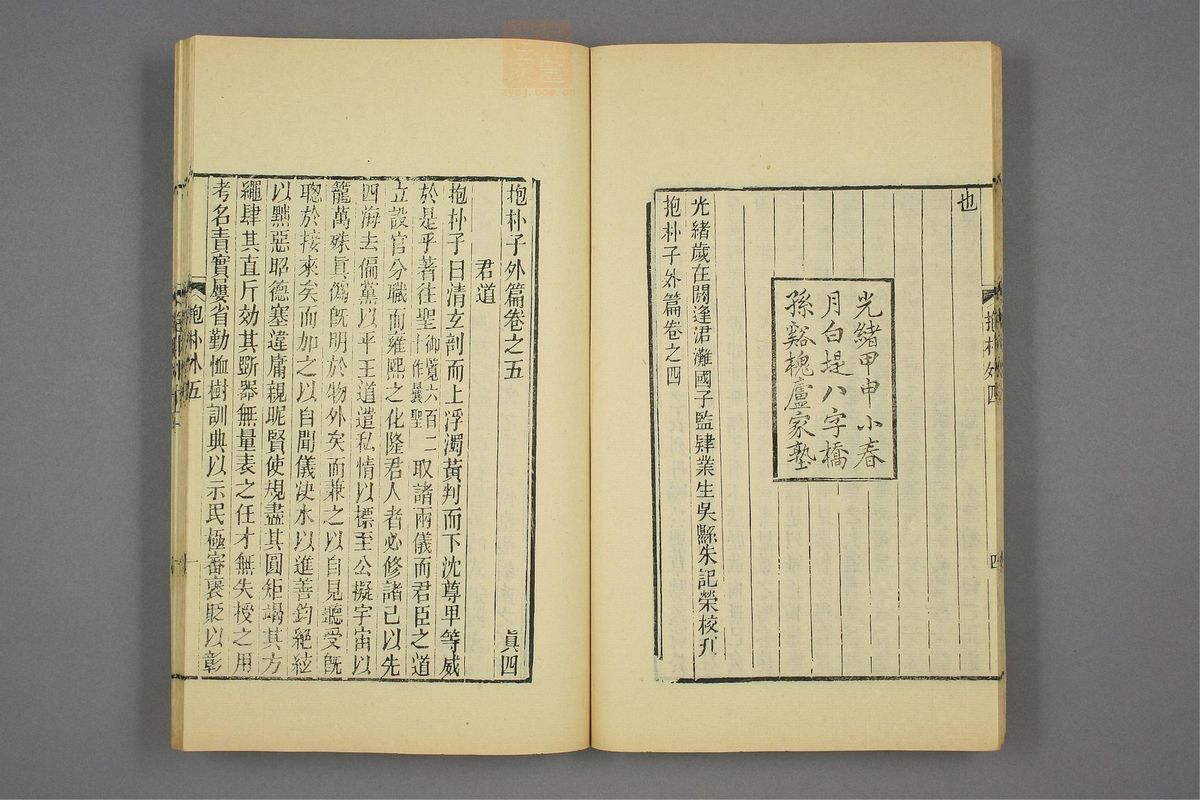 也
光緒甲申小春
月白堤八字橋
孫谿槐廬家塾
光緒歲在閼逢涒灘國子監肄業生吳縣朱記榮校刋
抱朴子外篇卷之四
抱朴外四
四
抱朴子外篇卷之五
眞四
君道
抱朴子曰清玄剖而上浮濁黃判而下沈尊卑等威
於是乎著往聖御覽六百二十作曩聖取諸兩儀而君臣之道
立設官分職而雍熙之化隆君人者必修諸己以先
四海去偏黨以平王道遣私情以標至公擬宇宙以
籠萬殊眞僞旣明於物外矣而兼之以自見聽受旣
聰於接來矣而加之以自聞儀決水以進善鈞絕絃
以黜惡昭德塞違庸親昵賢使規盡其圓矩竭其方
繩肆其直斤効其斲器無量表之任才無失授之用
考名責實屢省勤恤樹訓典以示民極審褒貶以彰
抱朴外五
一